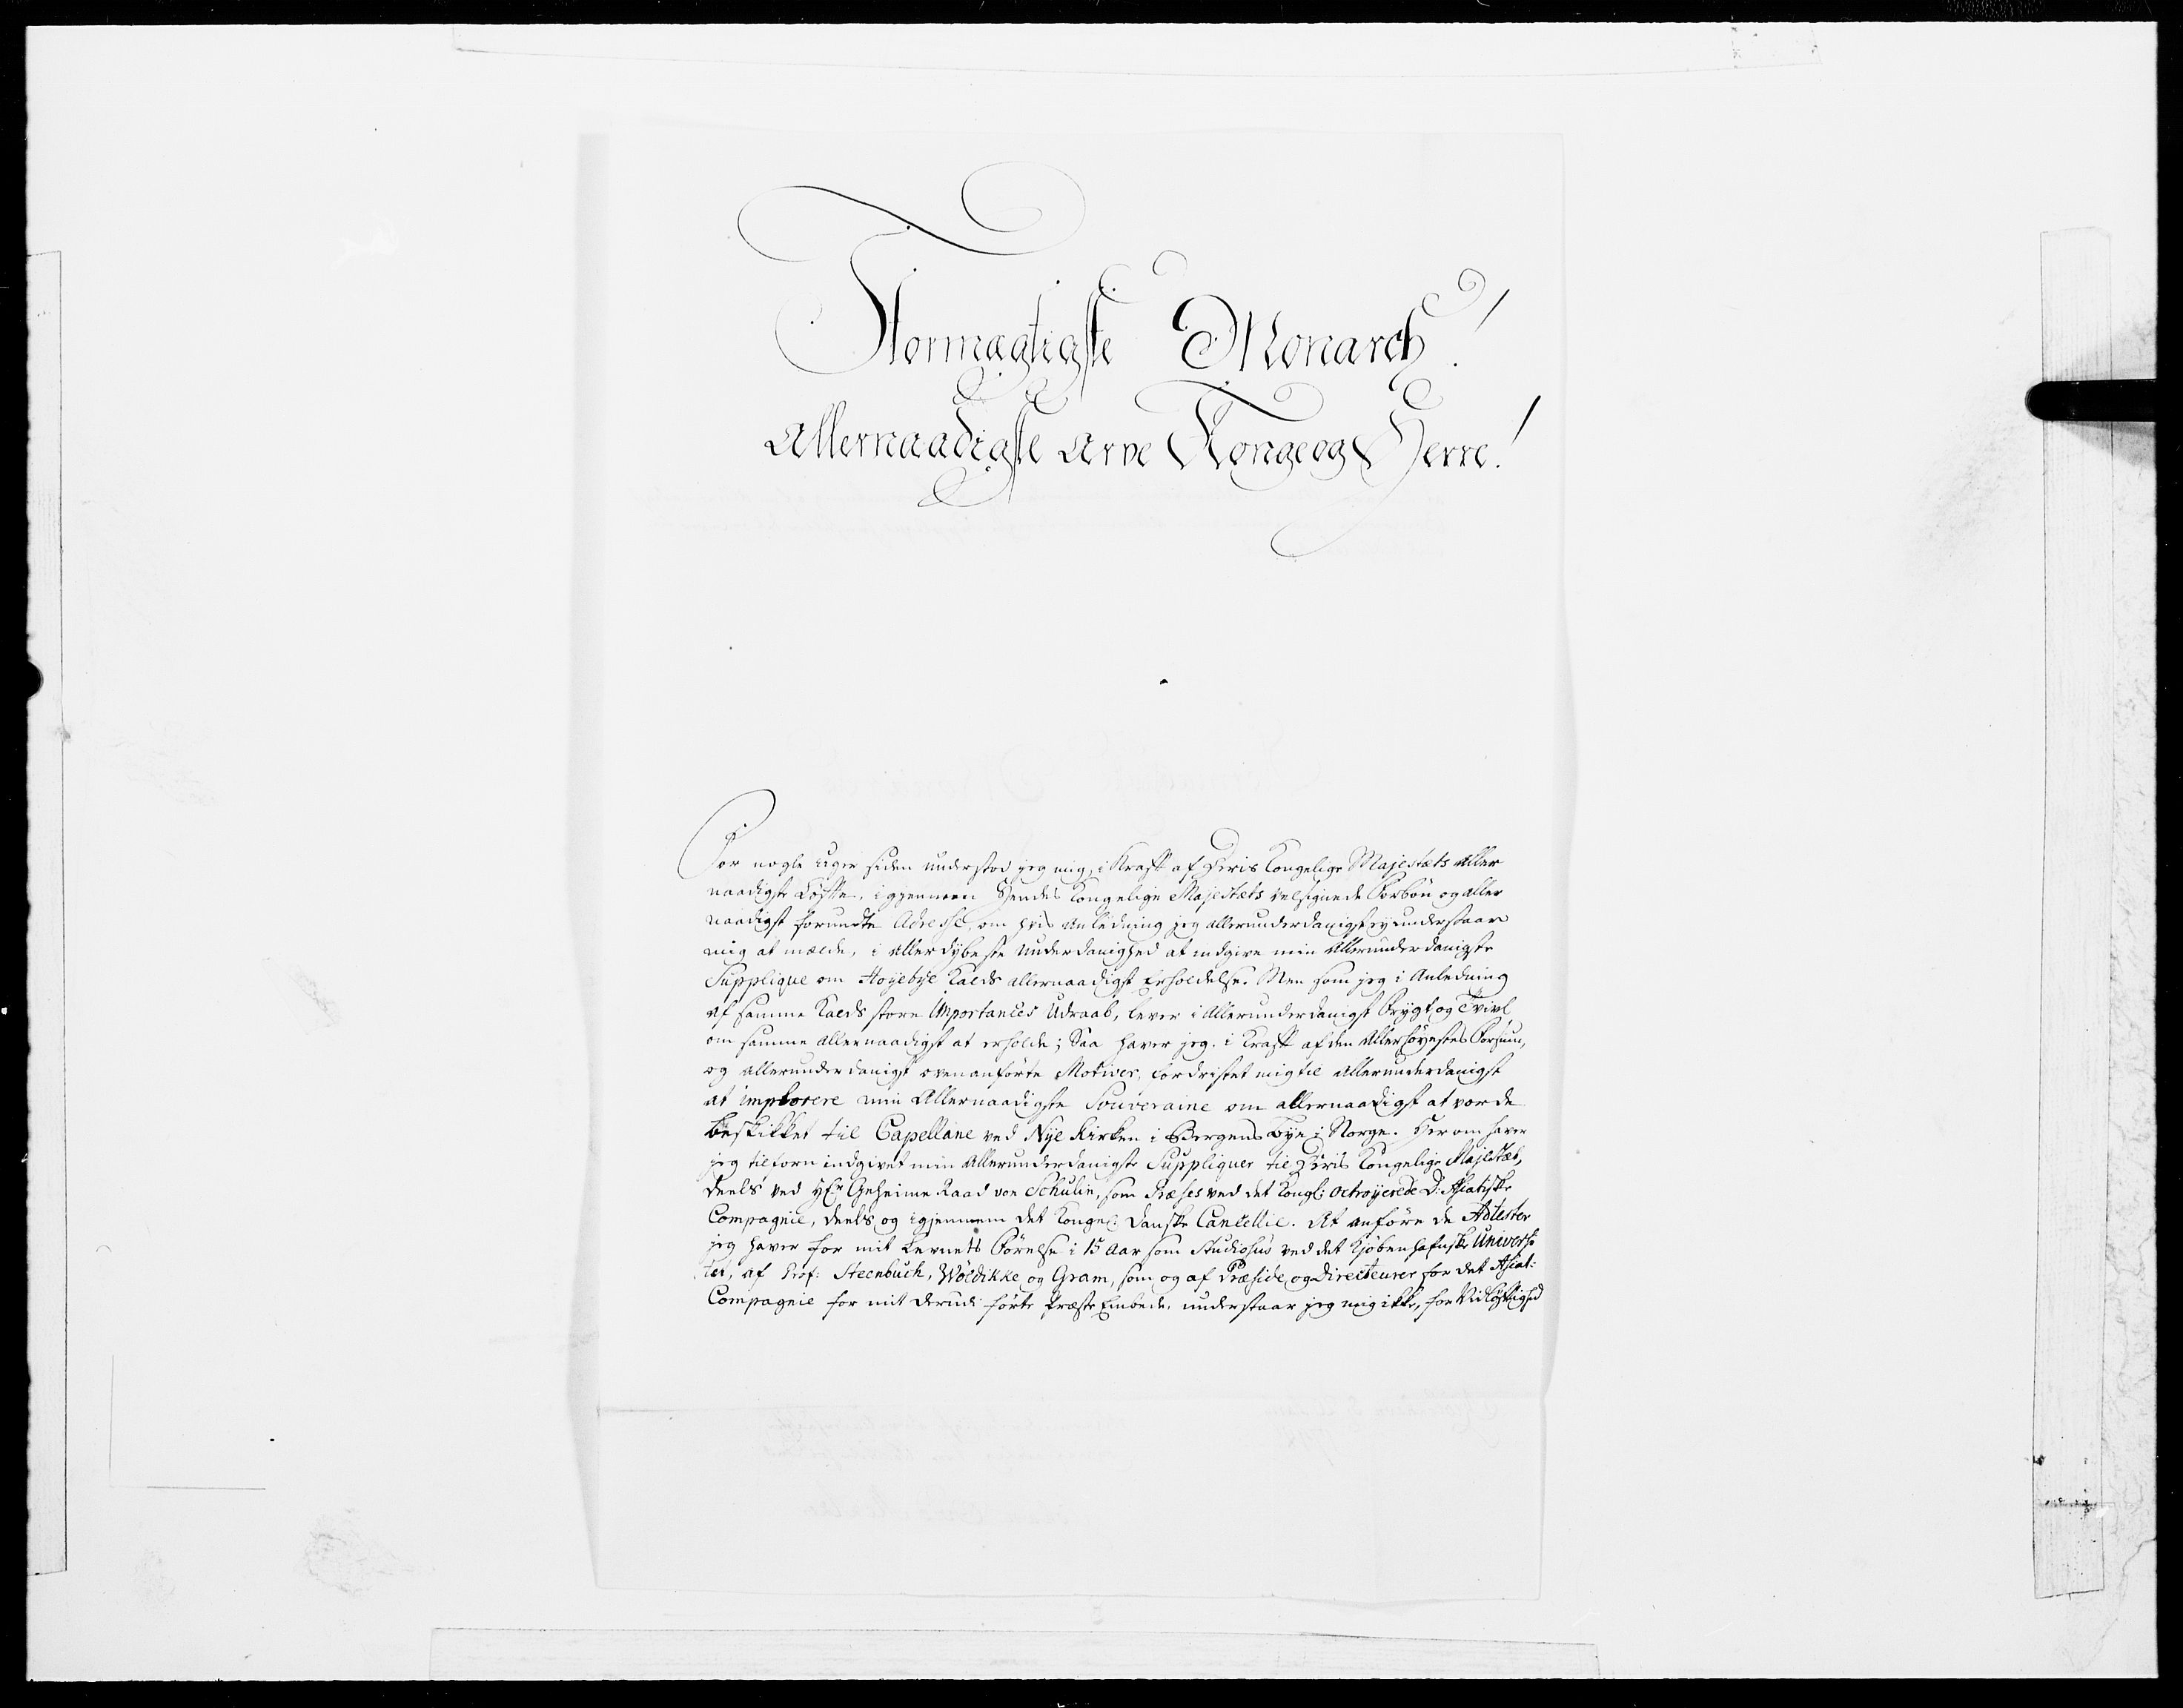 Stormægtigste Monarch!
Allernaadigste Arve Konge og Herre!
For nogle uger siden understod jeg mig, i Kraft af Deris Kongelige Majestæts aller
naadigste Løffte, igjennem Hendes Kongelige Majestæts velsignede Forbøn og aller
naadigst forundte Adresse, om hvis Anledning jeg allerunderdanigst ey understaar
mig at melde, i aller dybeste underdanighed at indgive min Allerunderdanigste
Supplique om Høyebye Kalds allernaadigst Erholdelse. Men som jeg i Anledning
af samme Kalds store Importances Udraab, lever i Allerunderdanigst Frygt og Tvivl
om samme allernaadigst at erholde; Saa haver jeg i Kraft af den Allerhøyestes Forsiun,
og allerunderdanigst ovenanførte Motiver, fordristet mig til allerunderdanigst
at implorere min Allernaadigste Souveraine om allernaadigst at vorde
beskikket til Capellane ved Nye Kirken i Bergens Bye i Norge. Herom haver
jeg tilforn indgivet min Allerunderdanigste Suppliquer til Deris Kongelige Majestæt,
deels ved Hr Geheime Raad von Schulin, som Præses ved det Kongl: octroyerede D: Asiatiske
Compagnie, deels og igjennem det Kongel: Danske Cancellie. At anføre de Attester
jeg haver for mit Levnets Førelse i 15 Aar som Studiosus ved det Kjøbenhafnske Universi
tet, af Prof: Steenbuch, Wöldikke og Gram, som og af Præside og Directeurer for det Asiat:
Compagnie for mit derudi førte Præste Embede, understaar jeg mig ikke, for Vidløftighed